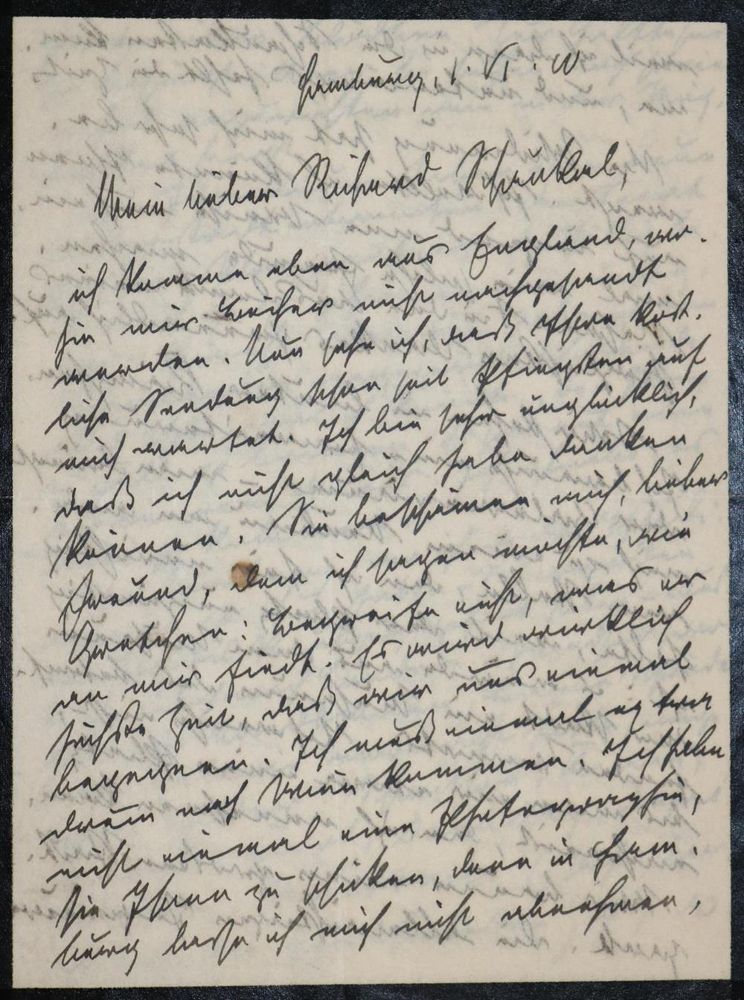 Hamburg, 1. VI. 10
Mein lieber Richard Schaukal,
ich komme eben aus England, wo-
hin mir Bücher nicht nachgesandt
werden. Nun sehe ich, daß Ihre köst-
liche Sendung schon seit Pfingsten auf
mich wartet. Ich bin sehr unglücklich,
daß ich nicht gleich habe danken
können. Sie beschämen mich, lieber
Freund, denn ich sagen möchte, wie
Gretchen: Begreife nicht, was er
an mir findt. Es wird wirklich
höchste Zeit, daß wir uns einmal
begegnen. Ich muß einmal extra
drum nach Wien kommen. Ich habe
nicht einmal eine Photographie,
sie Ihnen zu schicken, denn in Ham-
burg lasse ich mich nicht abnehmen,